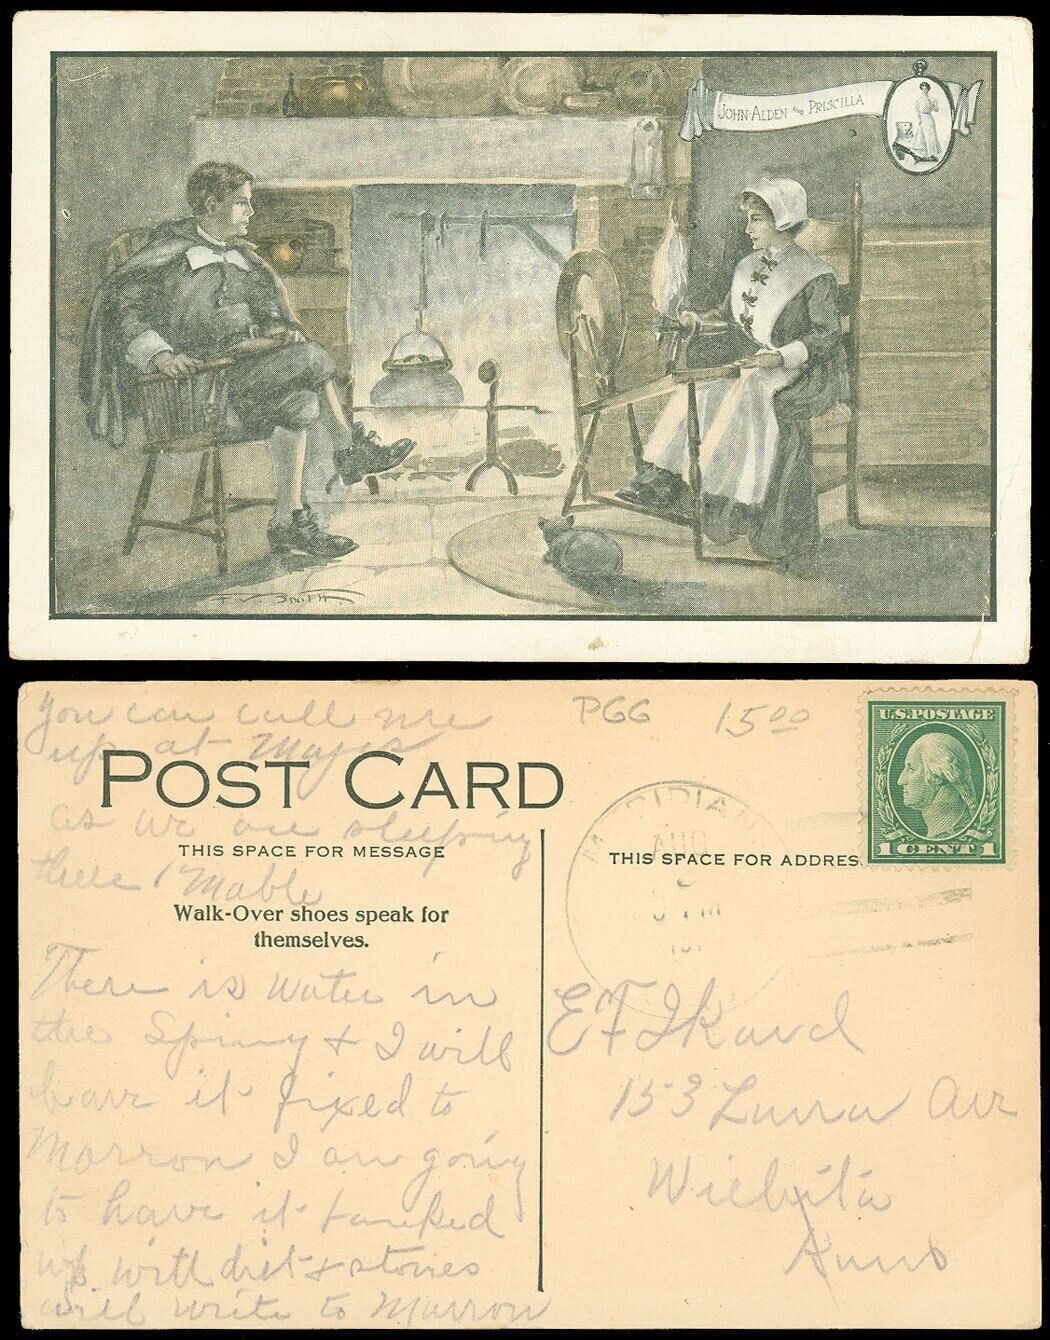 JOHN ALDEN AND PRISCILLA
F. V. SMITH.
You can call me
up at Mayes
as we are sleeping
there Mable
PGG
15.00
U.S. POSTAGE
1 CENT 1
POST CARD
THIS SPACE FOR MESSAGE
Walk-Over shoes speak for
themselves.
There is water in
the Spring & I will
have it fixed to
morrow I am going
to have it tanked
up with dirt & stones
will write to Morrow
THIS SPACE FOR ADDRES
AUG
PM
191
E F Ikard
153 Ave
Wichita
Kans